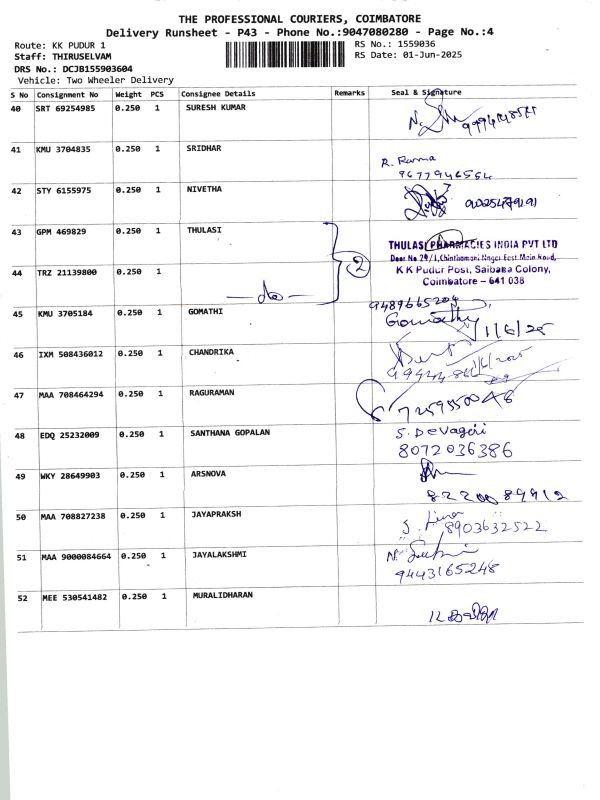 THE PROFESSIONAL COURIERS, COIMBATORE
Delivery Runsheet - P43 - Phone No.:9047080280 - Page No.:4
Route: KK PUDUR 1
RS No.: 1559036
Staff: THIRUSELVAM
RS Date: 01-Jun-2025
DRS No.: DCJB155903604
Vehicle: Two Wheeler Delivery
S No Consignment No Weight PCS Consignee Details Remarks Seal & Signature
40 SRT 69254985 0.250 1 SURESH KUMAR
41 KMU 3704835 0.250 1 SRIDHAR
R. Rama
9677946564
42 STY 6155975 0.250 1 NIVETHA
43 GPM 469829 0.250 1 THULASI
2
THULASI PHARMACIES INDIA PVT LTD
Door No.29/1,Chinthamani Nagar East Main Road,
K K Pudur Post, Saibaba Colony,
Coimbatore – 641 038
44 TRZ 21139800 0.250 1
— do —
45 KMU 3705184 0.250 1 GOMATHI
9489665204
Gomathy
1/6/25
46 IXM 508436012 0.250 1 CHANDRIKA
47 MAA 708464294 0.250 1 RAGURAMAN
7259550048
48 EDQ 25232009 0.250 1 SANTHANA GOPALAN
S. Devageri
8072036386
49 WKY 28649903 0.250 1 ARSNOVA
8220089912
50 MAA 708827238 0.250 1 JAYAPRAKSH
8903632522
51 MAA 9000084664 0.250 1 JAYALAKSHMI
9443165248
52 MEE 530541482 0.250 1 MURALIDHARAN